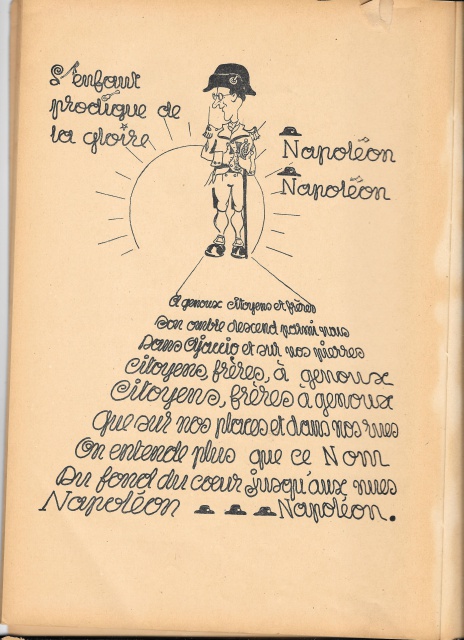 L'enfant
prodigue de
la gloire
Napoléon
Napoléon
A genoux citoyens et frères
Son ombre descend parmi nous
Dans Ajaccio et sur nos pierres
Citoyens, frères, à genoux
Citoyens, frères à genoux
Que sur nos places et dans nos rues
On entende plus que ce Nom
Du fond du cœur jusqu'aux nues
Napoléon Napoléon.